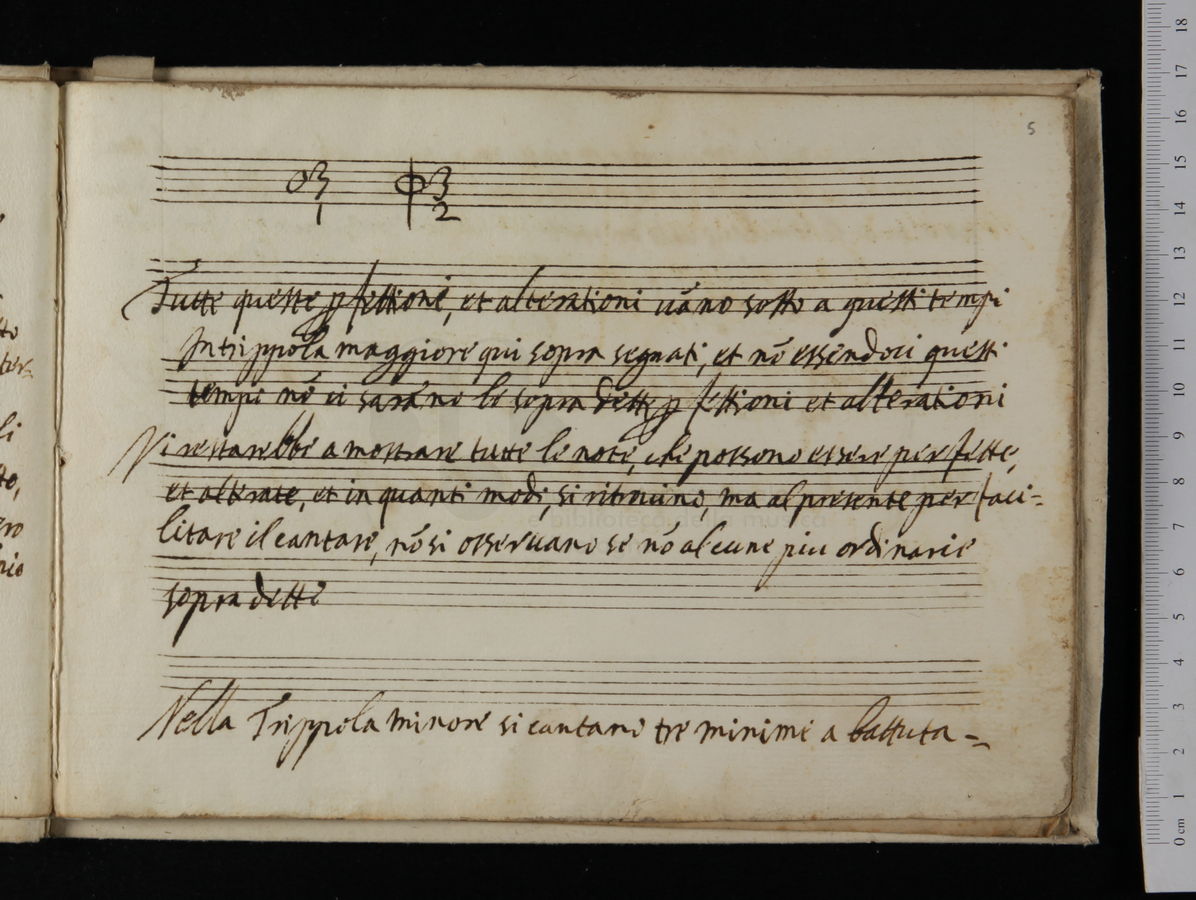 5
O3 Φ3
1 2
Tutte queste pfettioni, et alterationi uãno sotto a questi tempi
In trippola maggiore qui sopra segnati, et nõ essendoci questi
tempi nõ ci sarãno le sopra dette pfettioni et alterationi
Vi restarebbe a mostrare tutte le note, che possono essere perfette,
et alterate, et in quanti modi, si ritrovino, ma al presente per faci=
litare il cantare, nõ si osseruano se nõ alcune piu ordinarie
sopra dette
Nella Trippola minore si cantano tre minime a battuta =
e biblioteca della musica